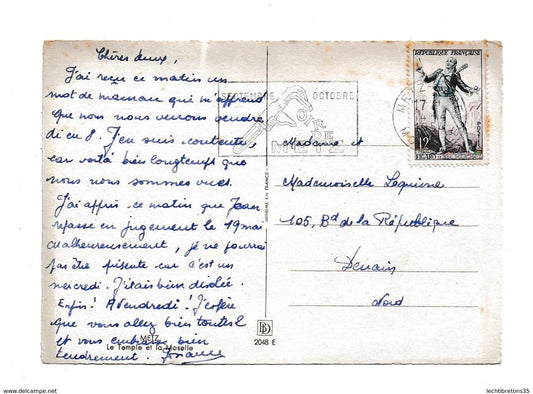 Chères deux,
J'ai reçu ce matin un
mot de maman qui m'apprend
que nous nous verrons vendre
di en 8. J'en suis contente,
car voilà bien longtemps que
nous nous sommes vues.
J'ai appris ce matin que Jean
repasse en jugement le 19 mai
Malheureusement, je ne pourrai
pas être présente car c'est un
mercredi. J'étais bien désolée.
Enfin! A vendredi! J'espère
que vous allez bien toutes 2
et vous embrasse bien
tendrement. France
METZ
Le Temple et la Moselle
2048 E
IMPRIMÉ EN FRANCE
SEPTEMBRE OCTOBRE
METZ
RÉPUBLIQUE FRANÇAISE
12
FIGARO
Madame et
Mademoiselle
105, Bd de la République
Denain
Nord
www.delcampe.net
lechtibretons35